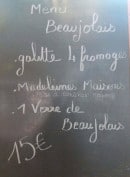 Menu
Beaujolais
. galette 4 fromages
. Madeleines Maisons
. 1 Verre de
Beaujolais
15€